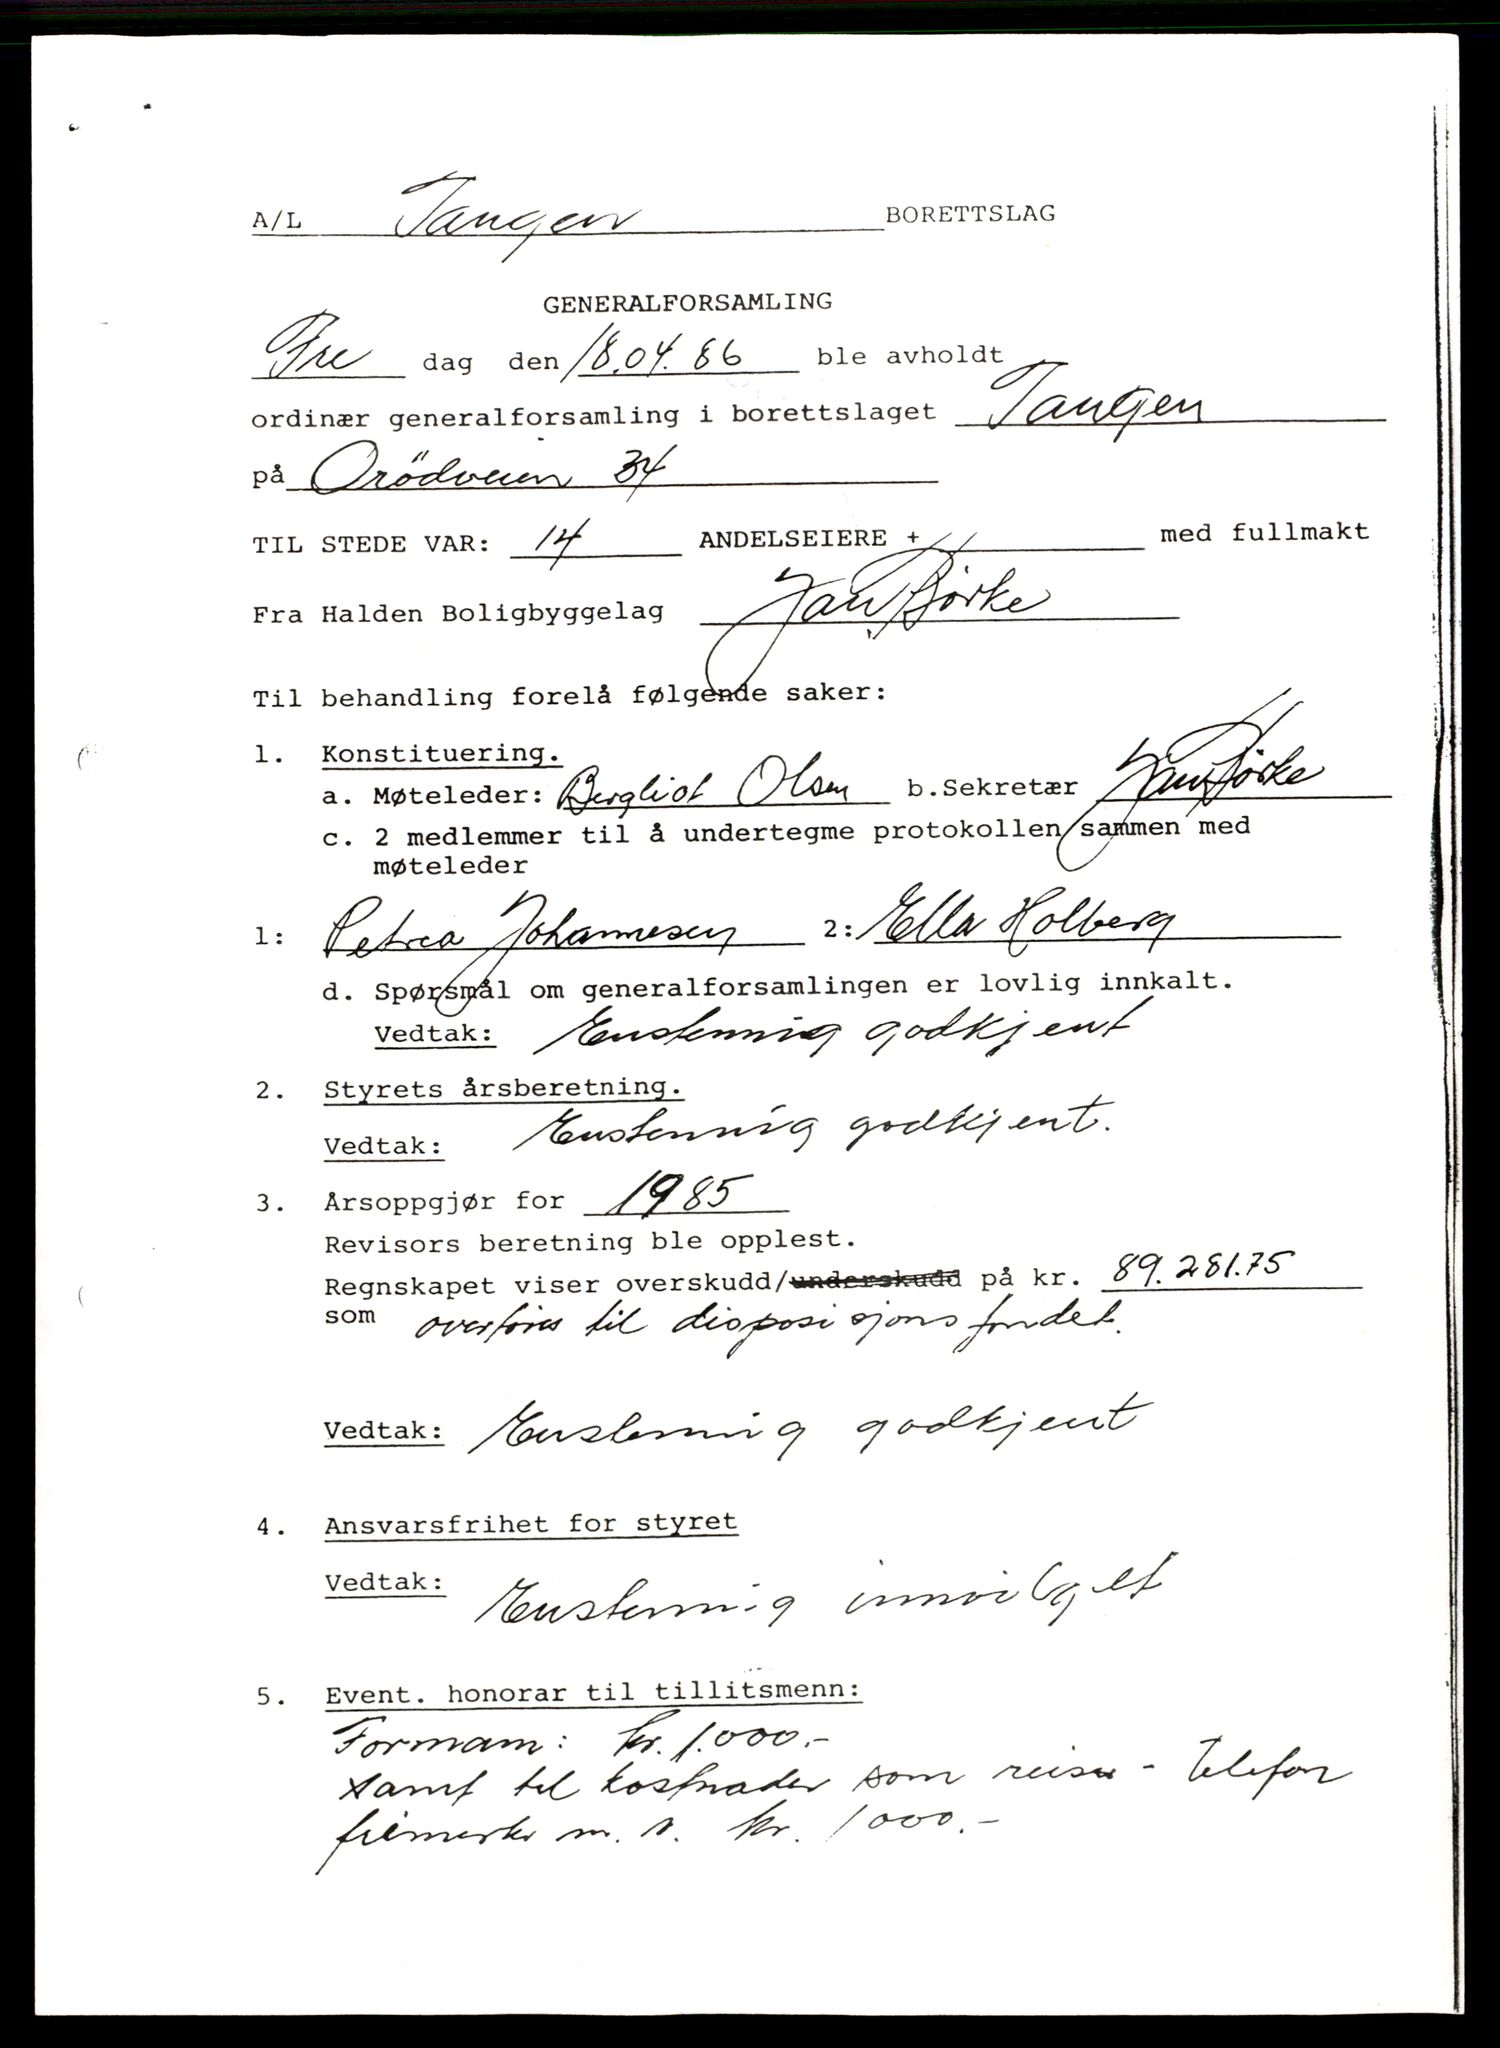 A/L Tangen BORETTSLAG
GENERALFORSAMLING
Fre dag den 18.04.86 ble avholdt
ordinær generalforsamling i borettslaget Tangen
på Orödveien 34
TIL STEDE VAR: 14 ANDELSEIERE + med fullmakt
Fra Halden Boligbyggelag Jan Börke
Til behandling forelå følgende saker:
1. Konstituering.
a. Møteleder: Bergliot Olsen b. Sekretær Jan Börke
c. 2 medlemmer til å undertegme protokollen sammen med
møteleder
1: Petrea Johannesen 2: Ella Holberg
d. Spørsmål om generalforsamlingen er lovlig innkalt.
Vedtak: Enstemmig godkjent
2. Styrets årsberetning.
Vedtak: Enstemmig godkjent.
3. Årsoppgjør for 1985
Revisors beretning ble opplest.
Regnskapet viser overskudd/underskudd på kr. 89.281.75
som overföres til disposisjonsfondet.
Vedtak: Enstemmig godkjent
4. Ansvarsfrihet for styret
Vedtak: Enstemmig innvilget
5. Event. honorar til tillitsmenn:
Formann: kr. 1.000.-
samt til kostnader som reise - telefon
frimerker m.v. kr. 1000.-